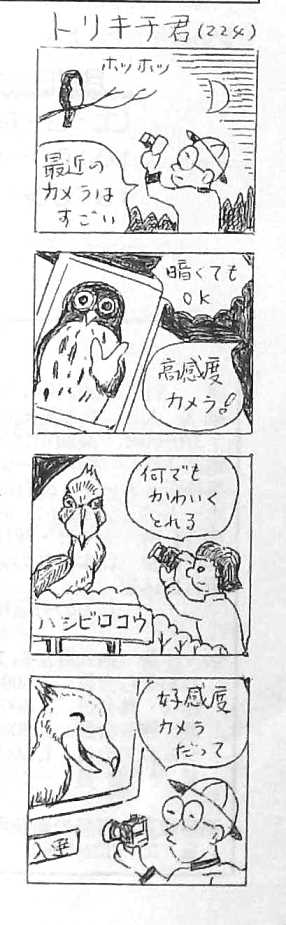 トリキチ君(224)
ホッホッ
最近の
カメラは
すごい
暗くても
OK
高感度
カメラ!
何でも
かわいく
とれる
ハシビロコウ
好感度
カメラ
だって
入選